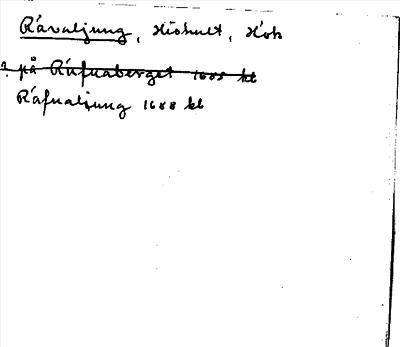 Råvaljung, Hishult, Hök
? på Råfuaberget 1685 kb
Råfualjung 1688 kb